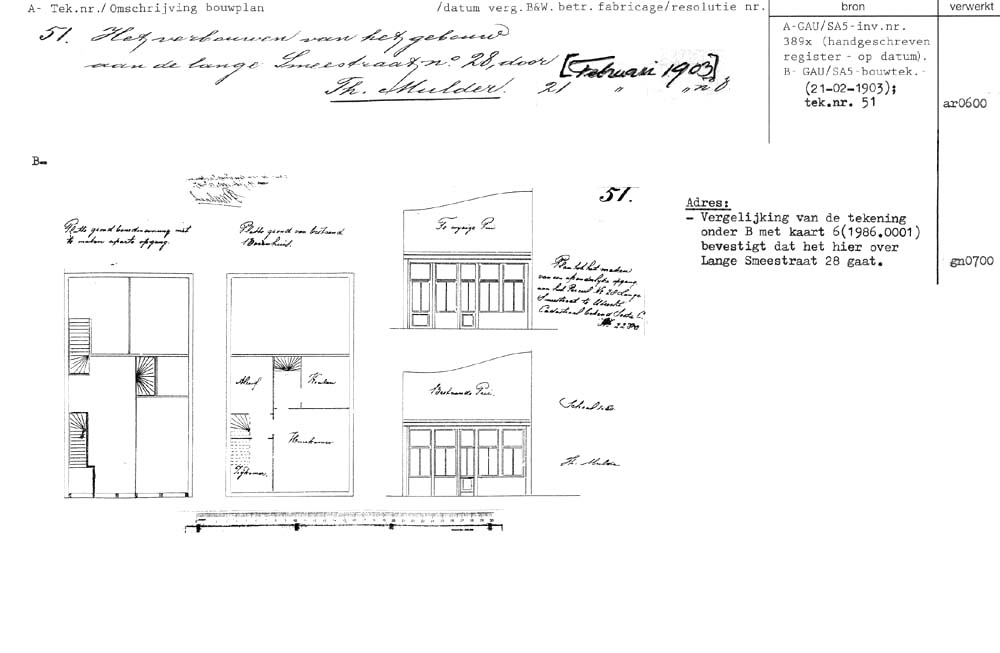 A- Tek.nr./ Omschrijving bouwplan /datum verg.B&W. betr. fabricage/resolutie nr. bron verwerkt
51. Het verbouwen van het gebouw
aan de lange Smeestraat, no. 28, door [Februari 1903]
Th. Mulder. 21 " " no 8
A-GAU/SA5-inv.nr.
389x (handgeschreven
register - op datum).
B- GAU/SA5-bouwtek.-
(21-02-1903);
tek.nr. 51 ar0600
B-
51.
Platte grond van bestaand
Bovenhuis.
Te wijzigen Pui
Plan tot het maken
van een afzonderlijke opgang
aan het Perceel No 28 Lange
Smeestraat te Utrecht
Cadastraal bekend Sectie C.
Adres:
- Vergelijking van de tekening
onder B met kaart 6(1986.0001)
bevestigt dat het hier over
Lange Smeestraat 28 gaat. gn0700
Alcoof
Keuken
Bestaande Pui.
Th. Mulder